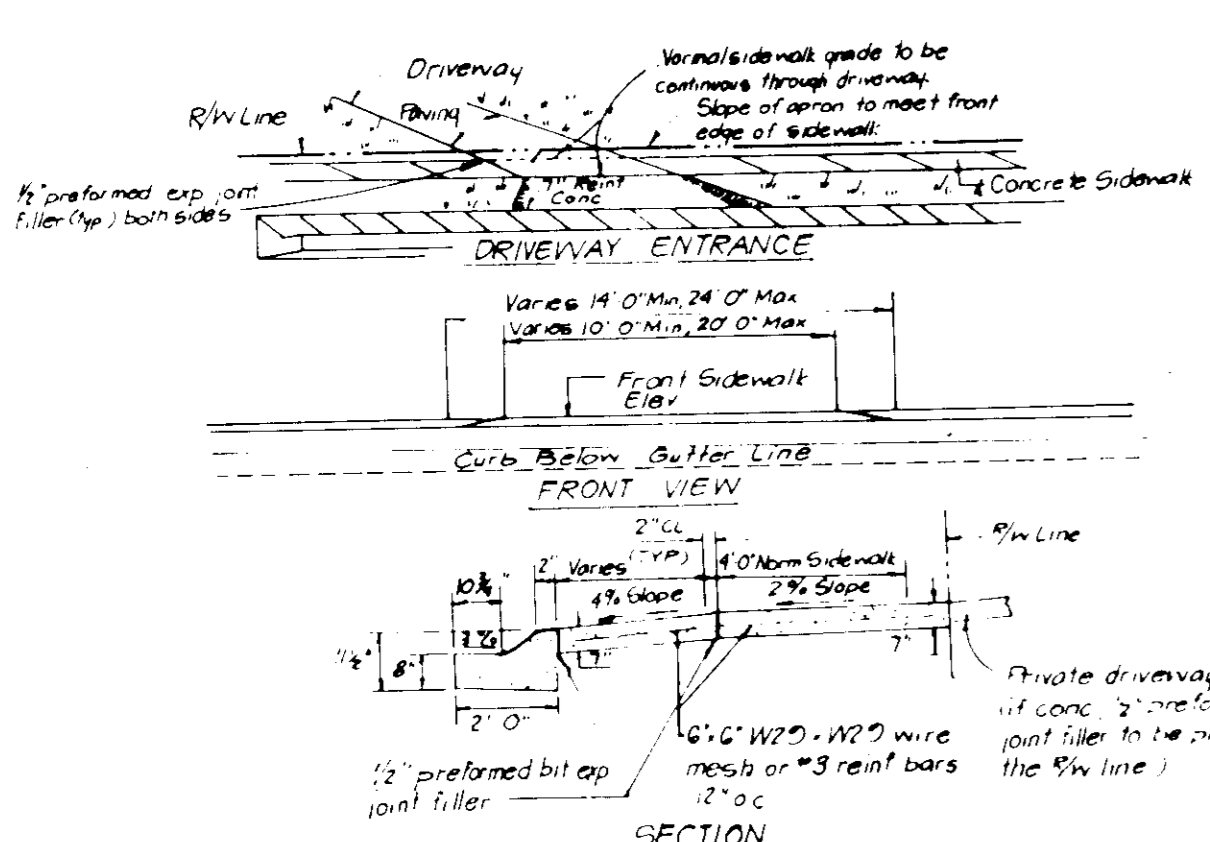 Driveway
Paving
R/W Line
Normal sidewalk grade to be
continuous through driveway.
Slope of apron to meet front
edge of sidewalk.
1/2" preformed exp joint
filler (typ) both sides
7" Reint
Conc
Concrete Sidewalk
DRIVEWAY ENTRANCE
Varies 14' 0" Min, 24' 0" Max
Varies 10' 0" Min, 20' 0" Max
Front Sidewalk
Elev
Curb Below Gutter Line
FRONT VIEW
2" CL
(TYP)
R/W Line
2"
Varies
4' 0" Norm Sidewalk
10 3/4"
4% Slope
2% Slope
8"
7"
7"
2' 0"
Private driveway
(if conc, 1/2" prefo
joint filler to be p
the R/W line)
6" x 6" W2.9 x W2.9 wire
mesh or #3 reinf bars
12" o c
1/2" preformed bit exp
joint filler
SECTION